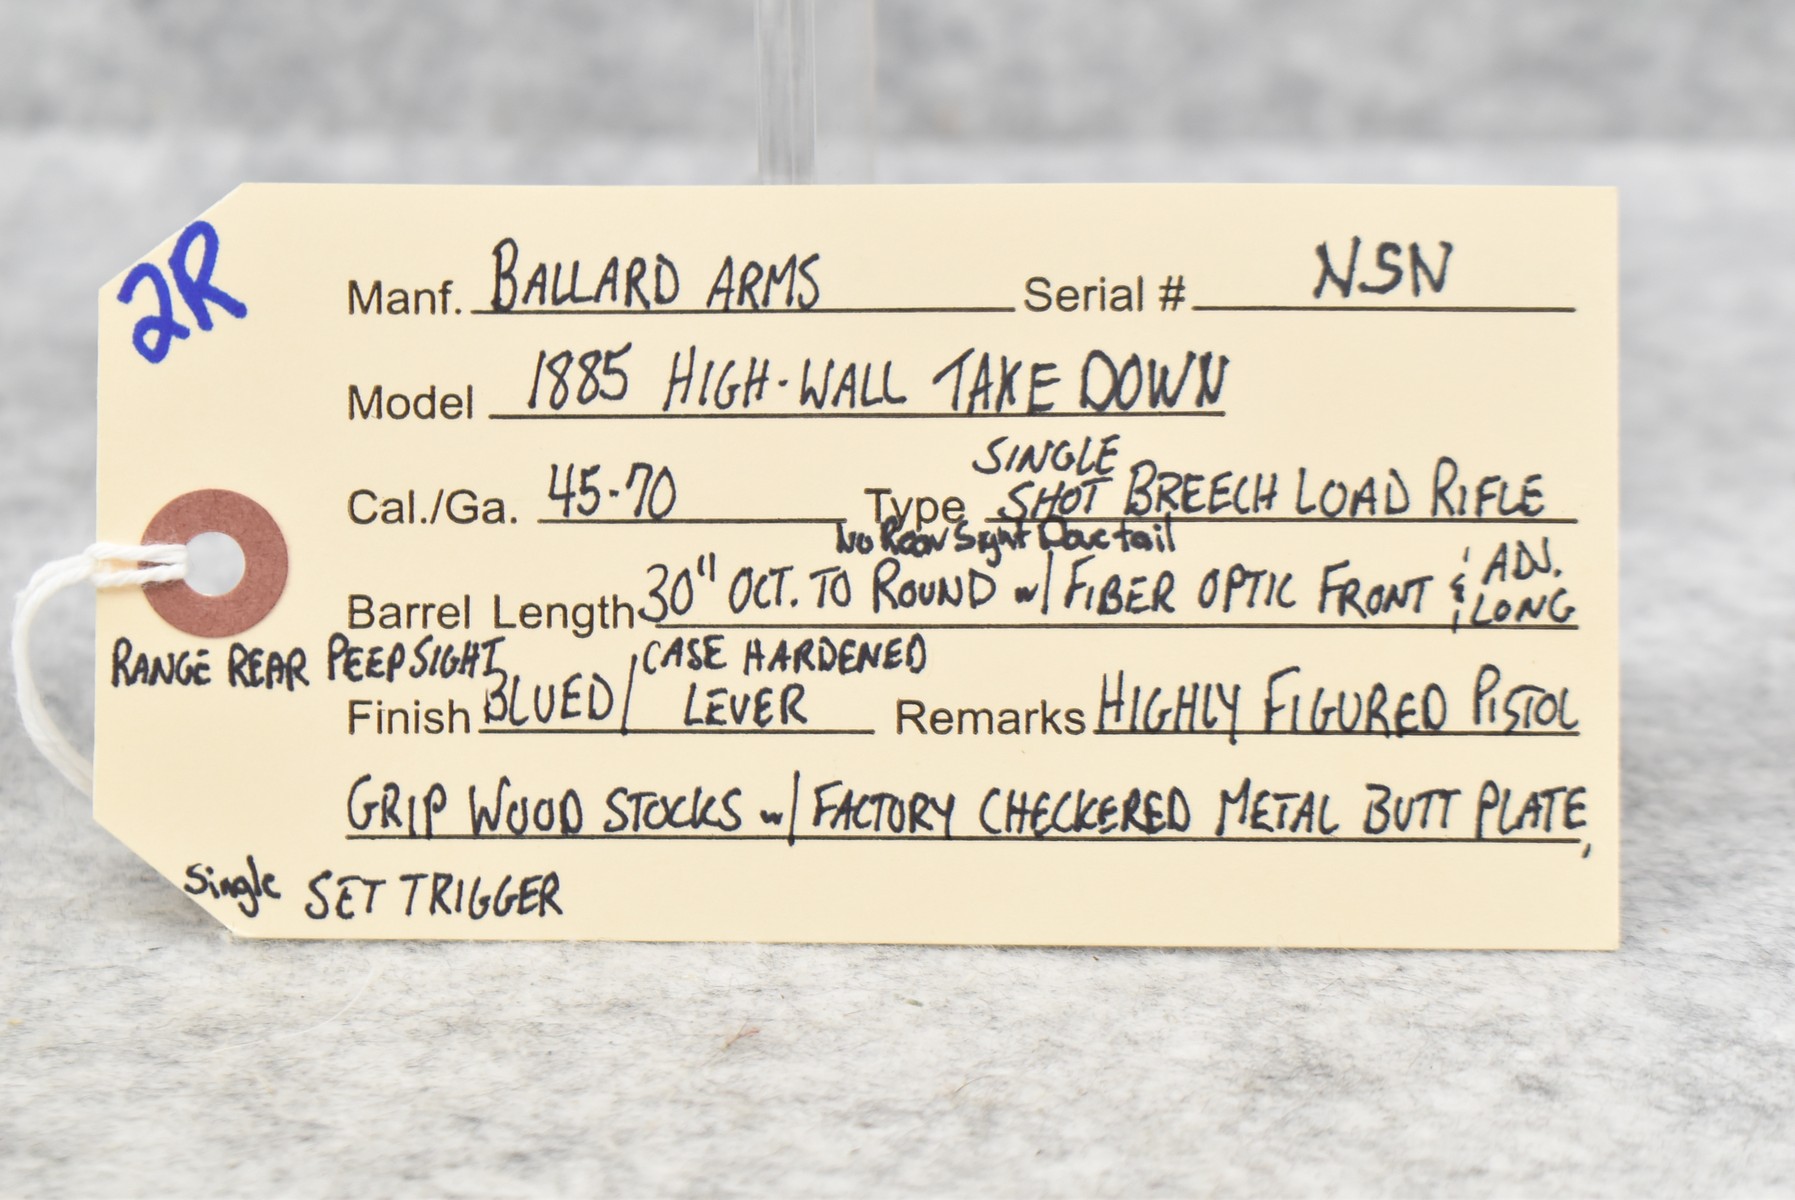 2R
Manf. BALLARD ARMS Serial # NSN
Model 1885 HIGH-WALL TAKE DOWN
SINGLE
Cal./Ga. 45-70 Type SHOT BREECH LOAD RIFLE
No Rear Sight Dovetail
& ADJ.
Barrel Length 30" OCT. TO ROUND w/ FIBER OPTIC FRONT LONG
RANGE REAR PEEP SIGHT
CASE HARDENED
Finish BLUED / LEVER Remarks HIGHLY FIGURED PISTOL
GRIP WOOD STOCKS w/ FACTORY CHECKERED METAL BUTT PLATE,
Single SET TRIGGER